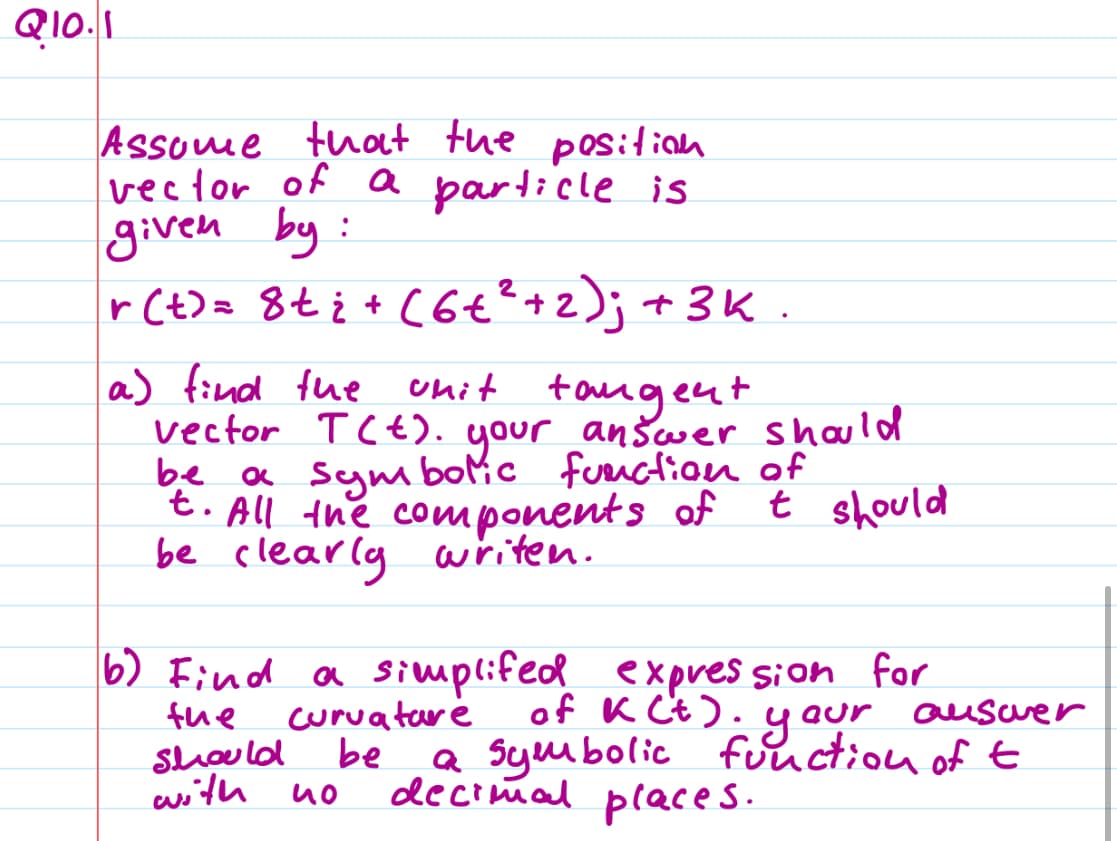 Q10.1
Assume that the position
vector of a particle is
given by:
r(t)= 8t i + (6t²+2)j + 3k.
a) find the unit tangent
vector T(t). your answer should
be a symbolic function of
t. All the components of t should
be clearly writen.
b) Find a simplifed expression for
the curvature of K(t). your answer
should be a symbolic function of t
with no decimal places.